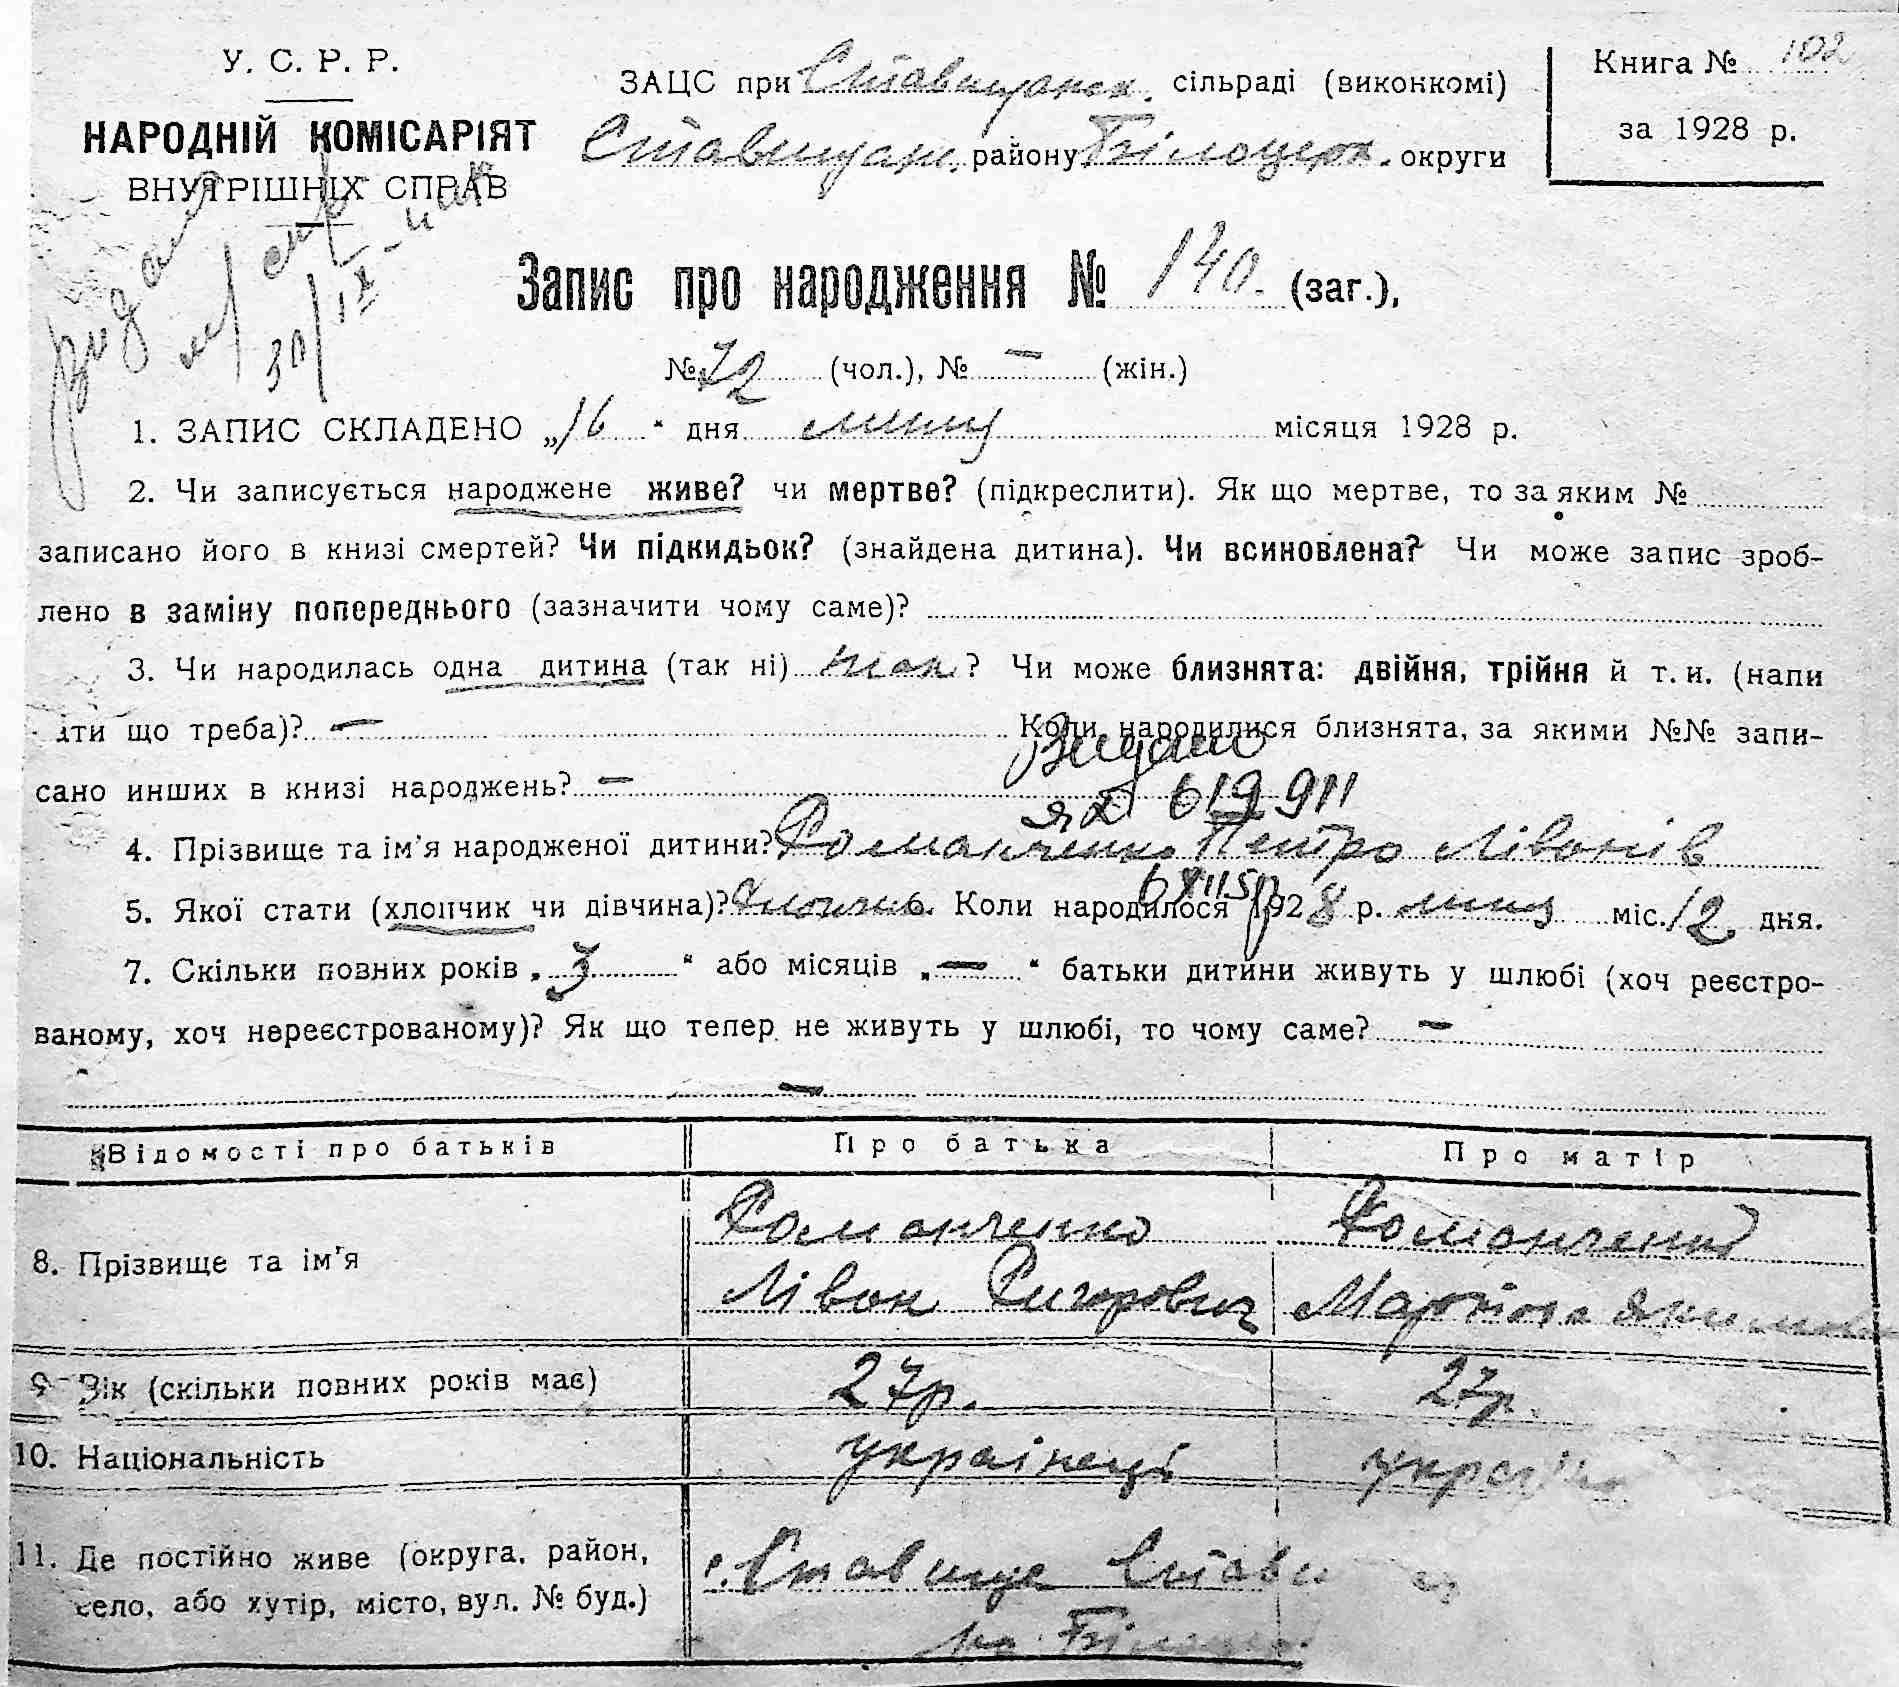 У. С. Р. Р.
НАРОДНІЙ КОМІСАРІЯТ
ВНУТРІШНІХ СПРАВ
ЗАЦС при Ставищанск. сільраді (виконкомі)
Ставищан. району Білоцерк. округи
Книга № 102
за 1928 р.
30/IX
Запис про народження № 140. (заг.),
№ 72 (чол.), № — (жін.)
1. ЗАПИС СКЛАДЕНО „16“ дня липц місяця 1928 р.
2. Чи записується народжене живе? чи мертве? (підкреслити). Як що мертве, то за яким №
записано його в книзі смертей? Чи підкидьок? (знайдена дитина). Чи всиновлена? Чи може запис зроб-
лено в заміну попереднього (зазначити чому саме)?
3. Чи народилась одна дитина (так ні) так? Чи може близнята: двійня, трійня й т. и. (напи
ати що треба)? — Коли народилися близнята, за якими №№ запи-
сано инших в книзі народжень? —
Видано
619911
4. Прізвище та ім'я народженої дитини? Романченко Петро Лівонів
5. Якої стати (хлопчик чи дівчина)? Хлопчик 6. Коли народилося 1928 р. липц міс. 12 дня.
7. Скільки повних років „3“ або місяців „—“ батьки дитини живуть у шлюбі (хоч реєстро-
ваному, хоч нереєстрованому)? Як що тепер не живуть у шлюбі, то чому саме? —
—
Відомості про батьків Про батька Про матір
8. Прізвище та ім'я Романченко Лівон Григорович Романченко
9. Вік (скільки повних років має) 27р. 27р.
10. Національність українець
11. Де постійно живе (округа, район,
село, або хутір, місто, вул. № буд.) Ставище